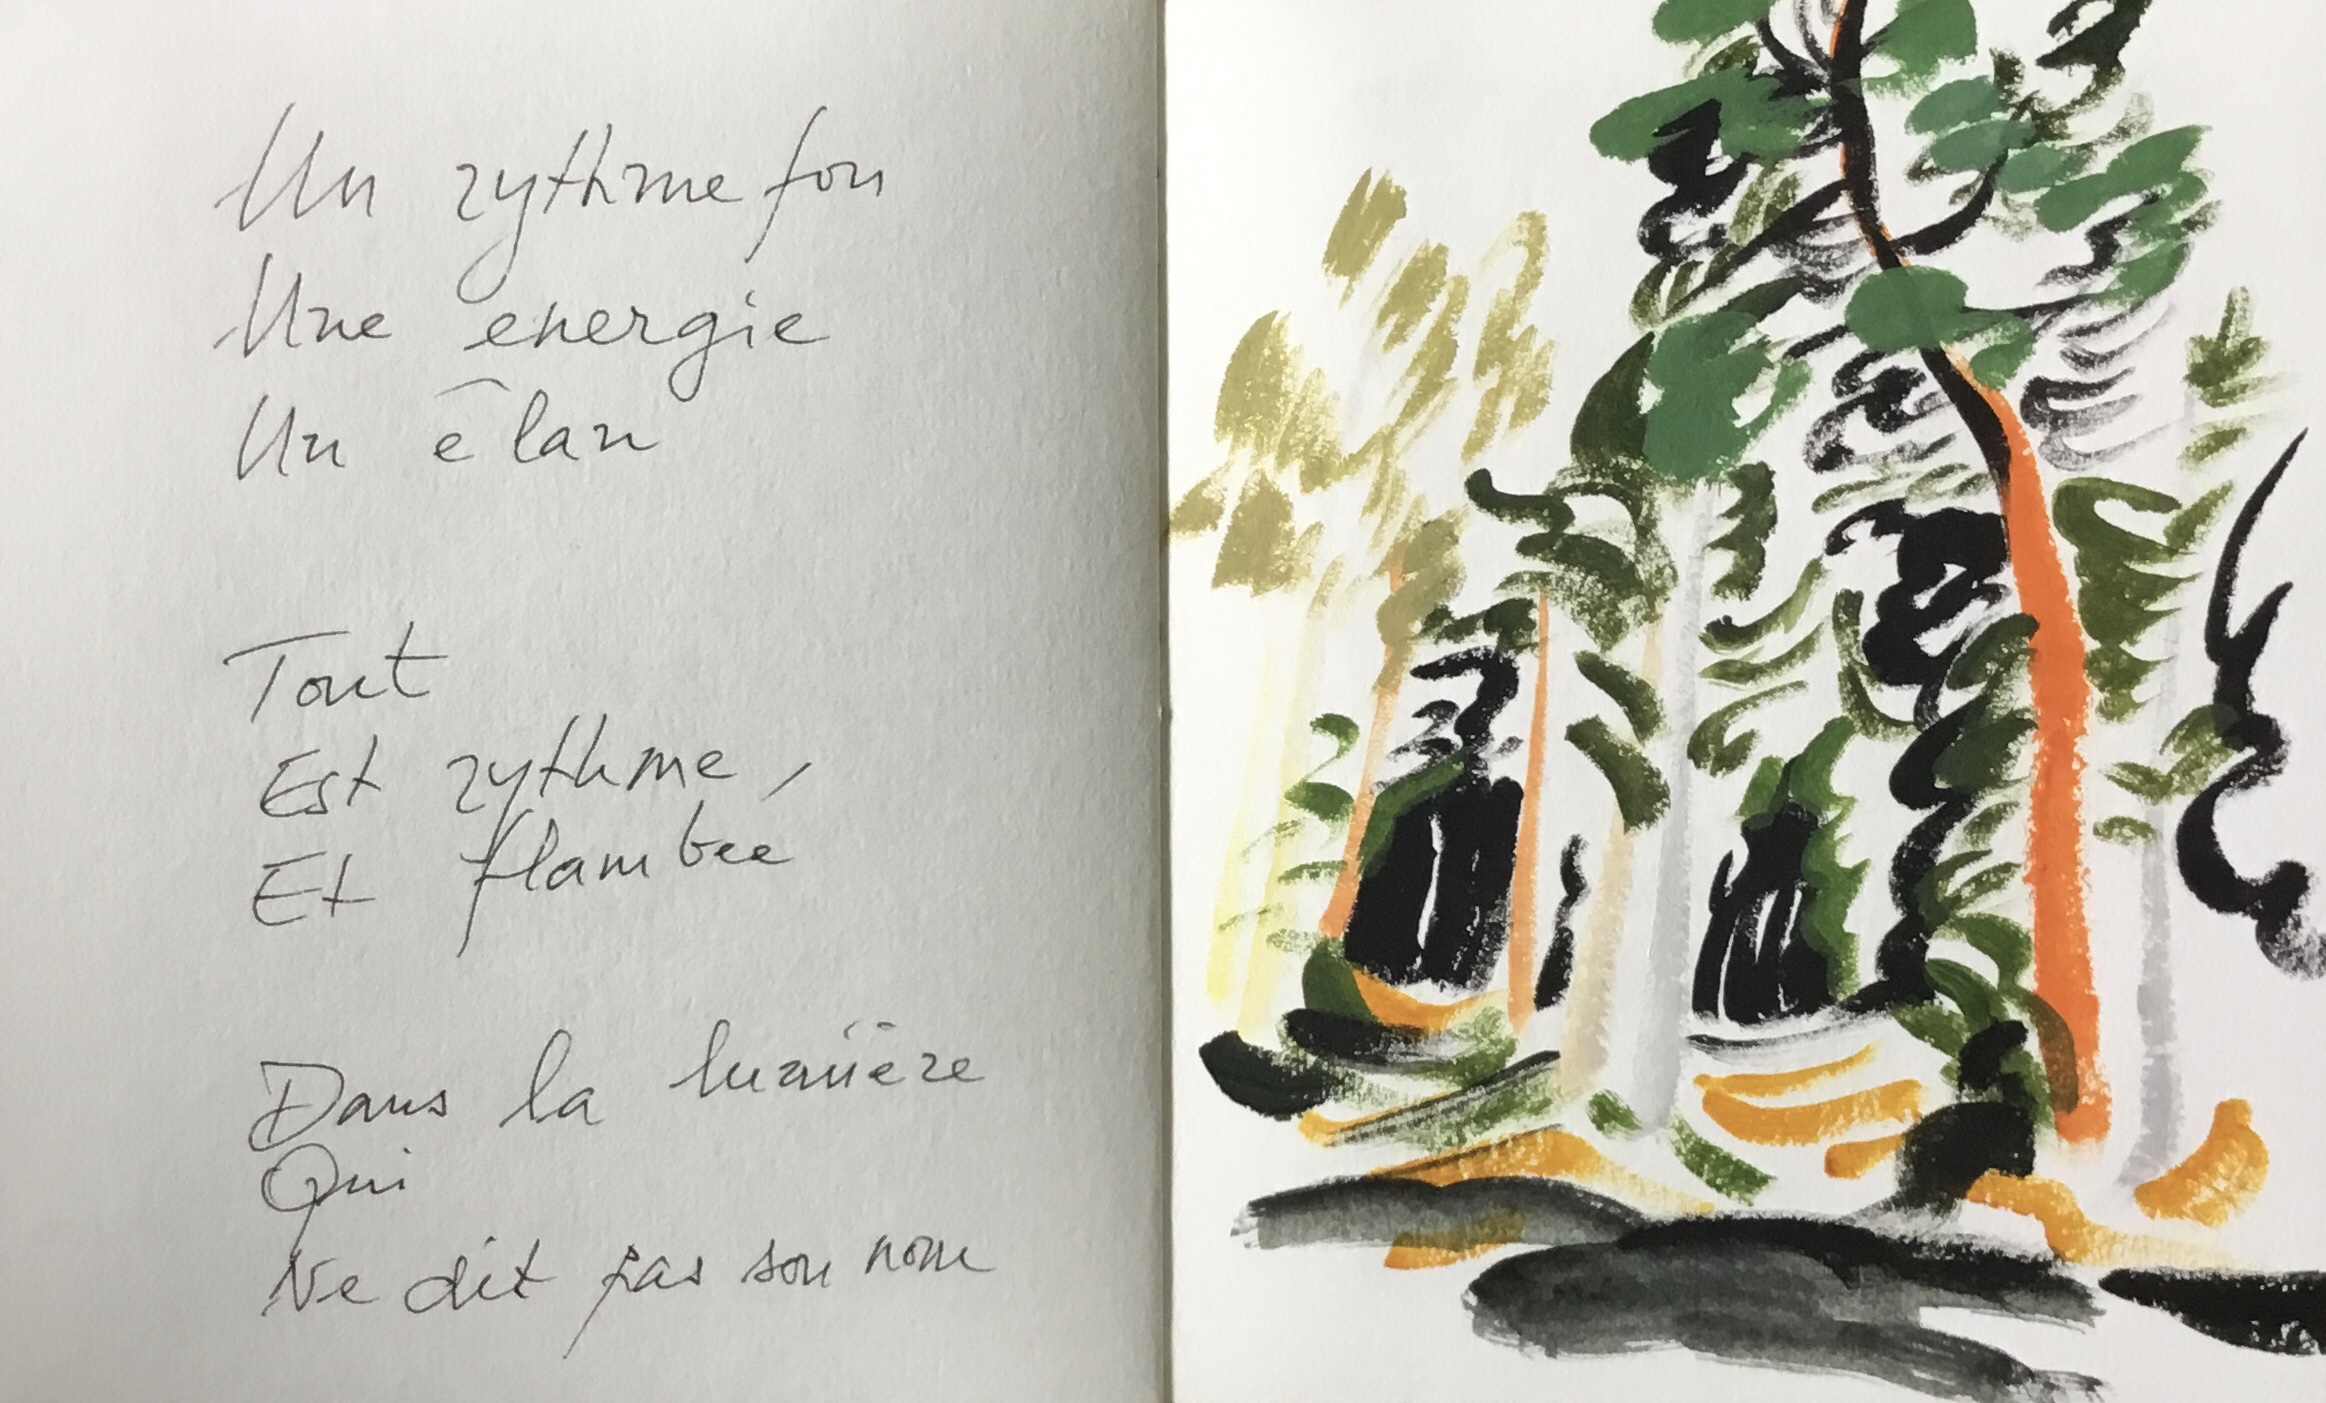 Un rythme fou
Une energie
Un élan
Tout
Est rythme,
Et flambée
Dans la lumière
Qui
Ne dit pas son nom